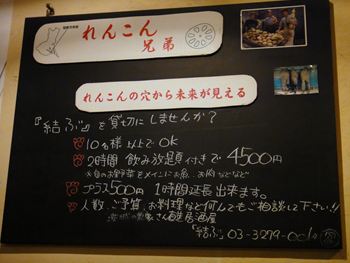 れんこん
兄弟
れんこんの穴から未来が見える
『結ぶ』を貸切にしませんか？
10名様以上でOK
2時間 飲み放題付きで 4500円
※旬のお野菜をメインにお魚、お肉などなど
プラス500円 1時間延長出来ます。
人数、ご予算、お料理など何んでもご相談して下さい!!
茨城の農家さん直送居酒屋
『結ぶ』 03-3299-